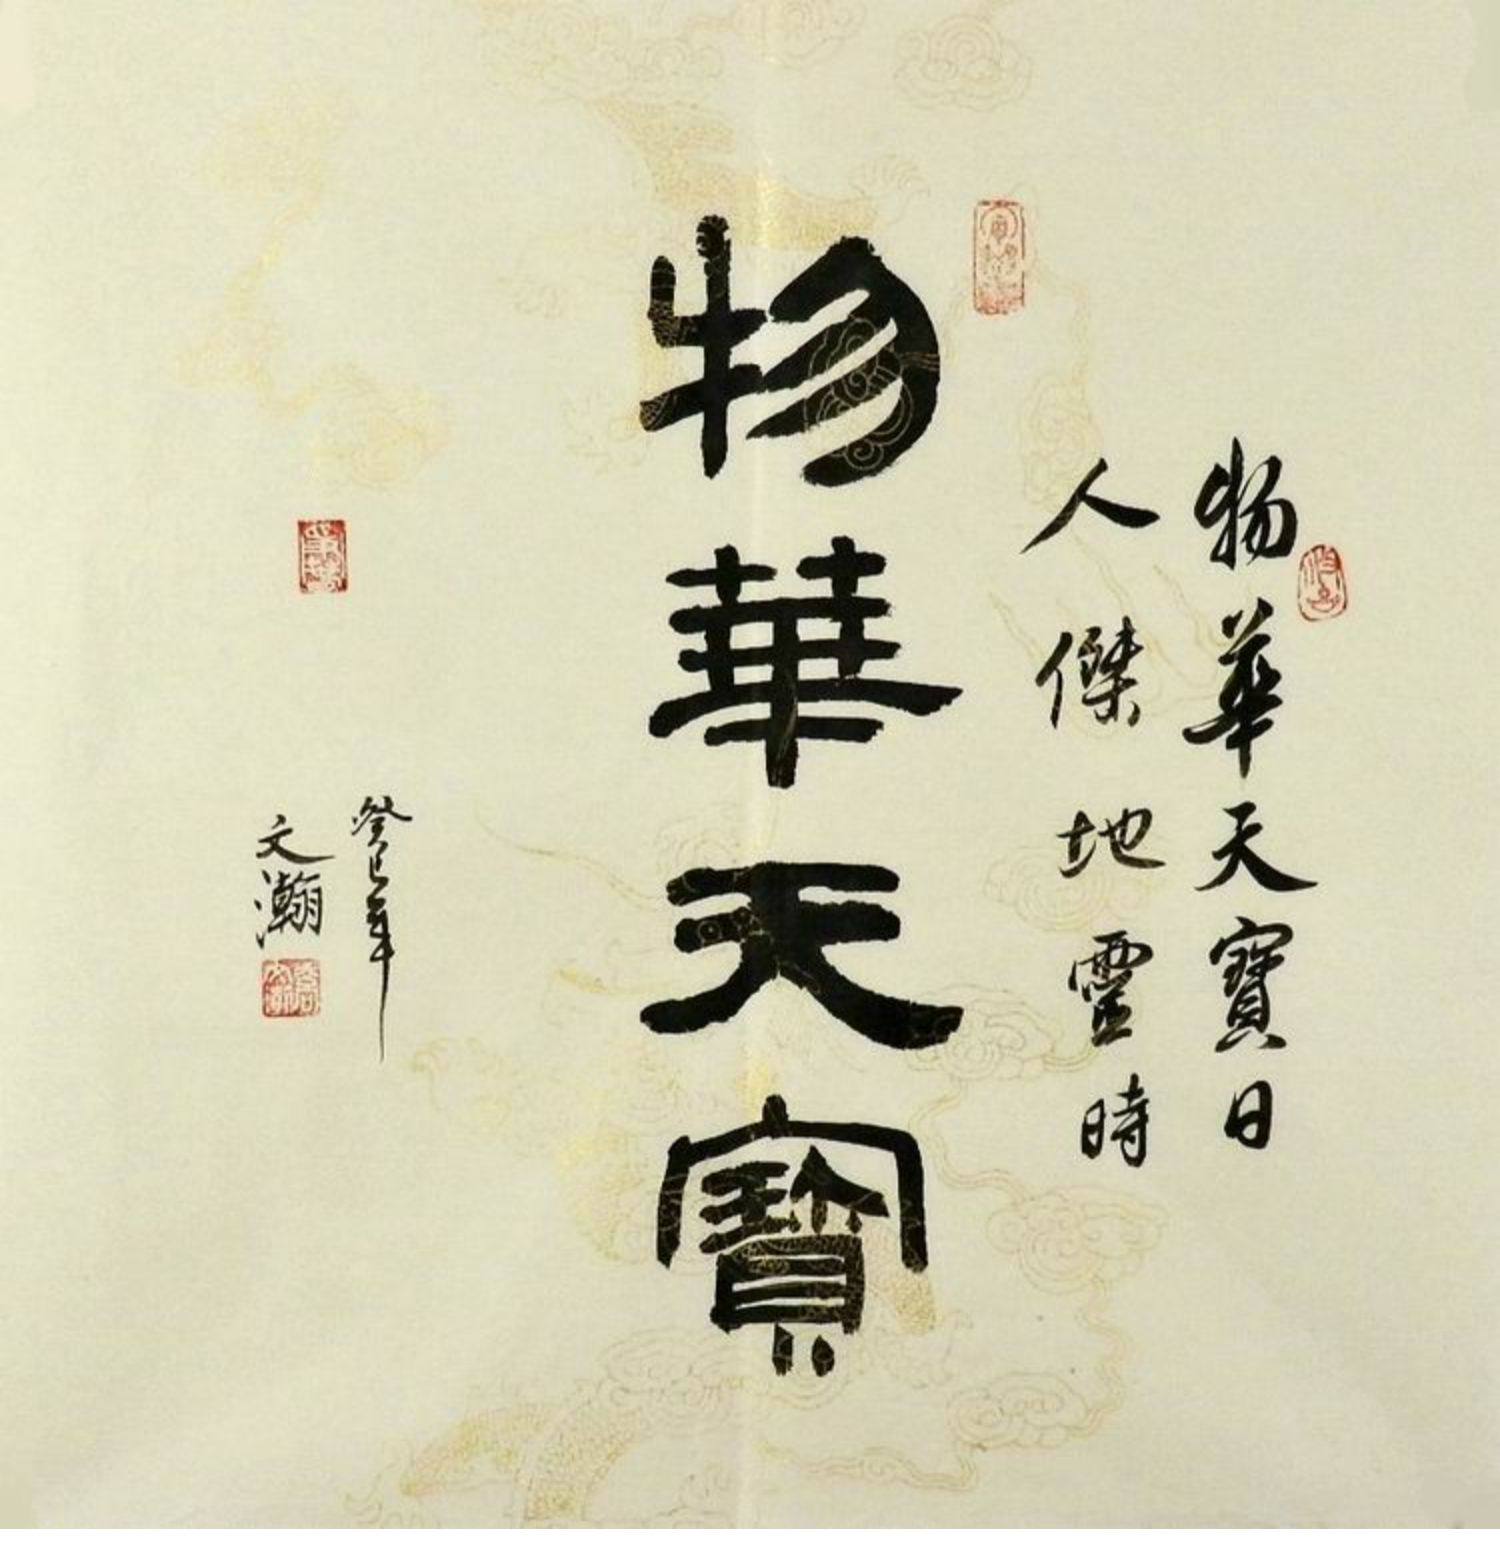 物華天寶日
人傑地靈時
物華天寶
癸巳年
文瀚